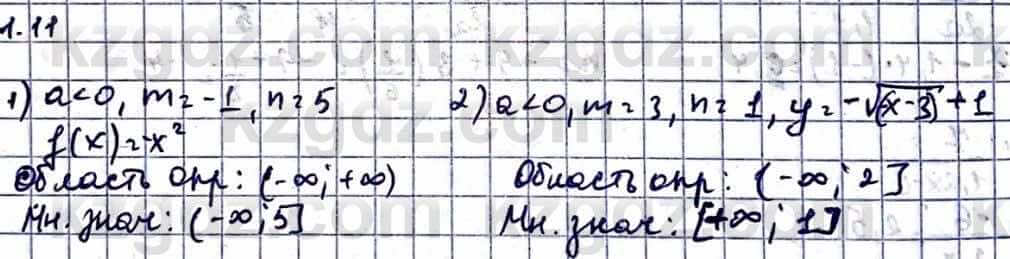 1.11
1) a<0, m=-1, n=5
f(x)=-x²
Область опр: (-∞; +∞)
Мн. знач: (-∞; 5]
2) a<0, m=3, n=1, y=-√(x-3)+1
Область опр: (-∞; 2]
Мн. знач: [+∞; 1]
kzgdz.com